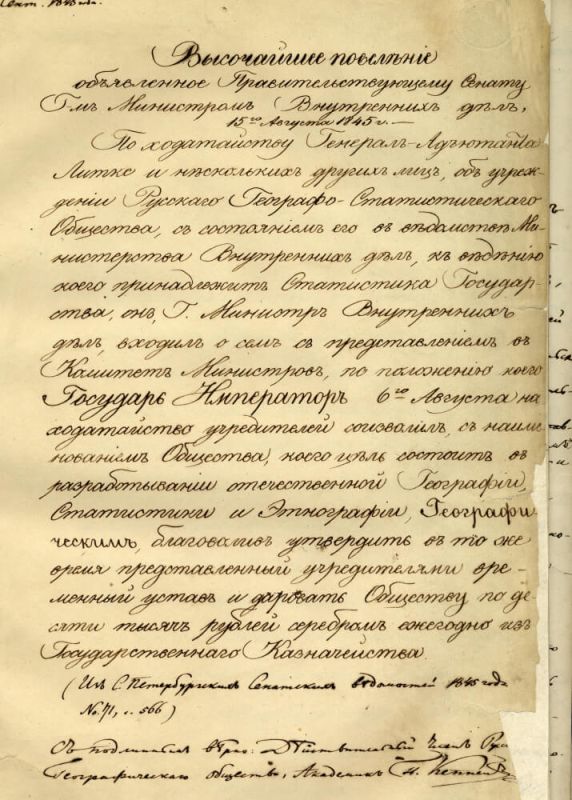 Сент. 1845 года.
Высочайшее повелѣніе
объявленное Правительствующему Сенату
Г-мъ Министромъ Внутреннихъ дѣлъ,
15го Августа 1845 г.—
По ходатайству Генералъ-Адъютанта
Литке и нѣсколькихъ другихъ лицъ, объ учреж-
деніи Русскаго Географо-Статистическаго
Общества, съ состояніемъ его въ вѣдомствѣ Ми-
нистерства Внутреннихъ дѣлъ, къ вѣдѣнію
коего принадлежитъ Статистика Государ-
ства, онъ, Г. Министръ Внутреннихъ
дѣлъ, входилъ о семъ съ представленіемъ въ
Комитетъ Министровъ, по положенію коего
Государь Императоръ 6го Августа на
ходатайство учредителей соизволилъ, съ наиме-
нованіемъ Общества, коего цѣль состоитъ въ
разработываніи отечественной Географіи,
Статистики и Этнографіи, Географи-
ческимъ, благоволивъ утвердить въ то же
время представленный учредителями вре-
менный уставъ и даровать Обществу по де-
сяти тысячъ рублей серебромъ ежегодно изъ
Государственнаго Казначейства.
(Изъ С. Петербургскихъ Сенатскихъ вѣдомостей 1845 года
No. 71, с. 566)
Съ подлиннымъ вѣрно: Дѣйствительный Членъ Рус
Географическаго общества, Академикъ П. Кеппенъ